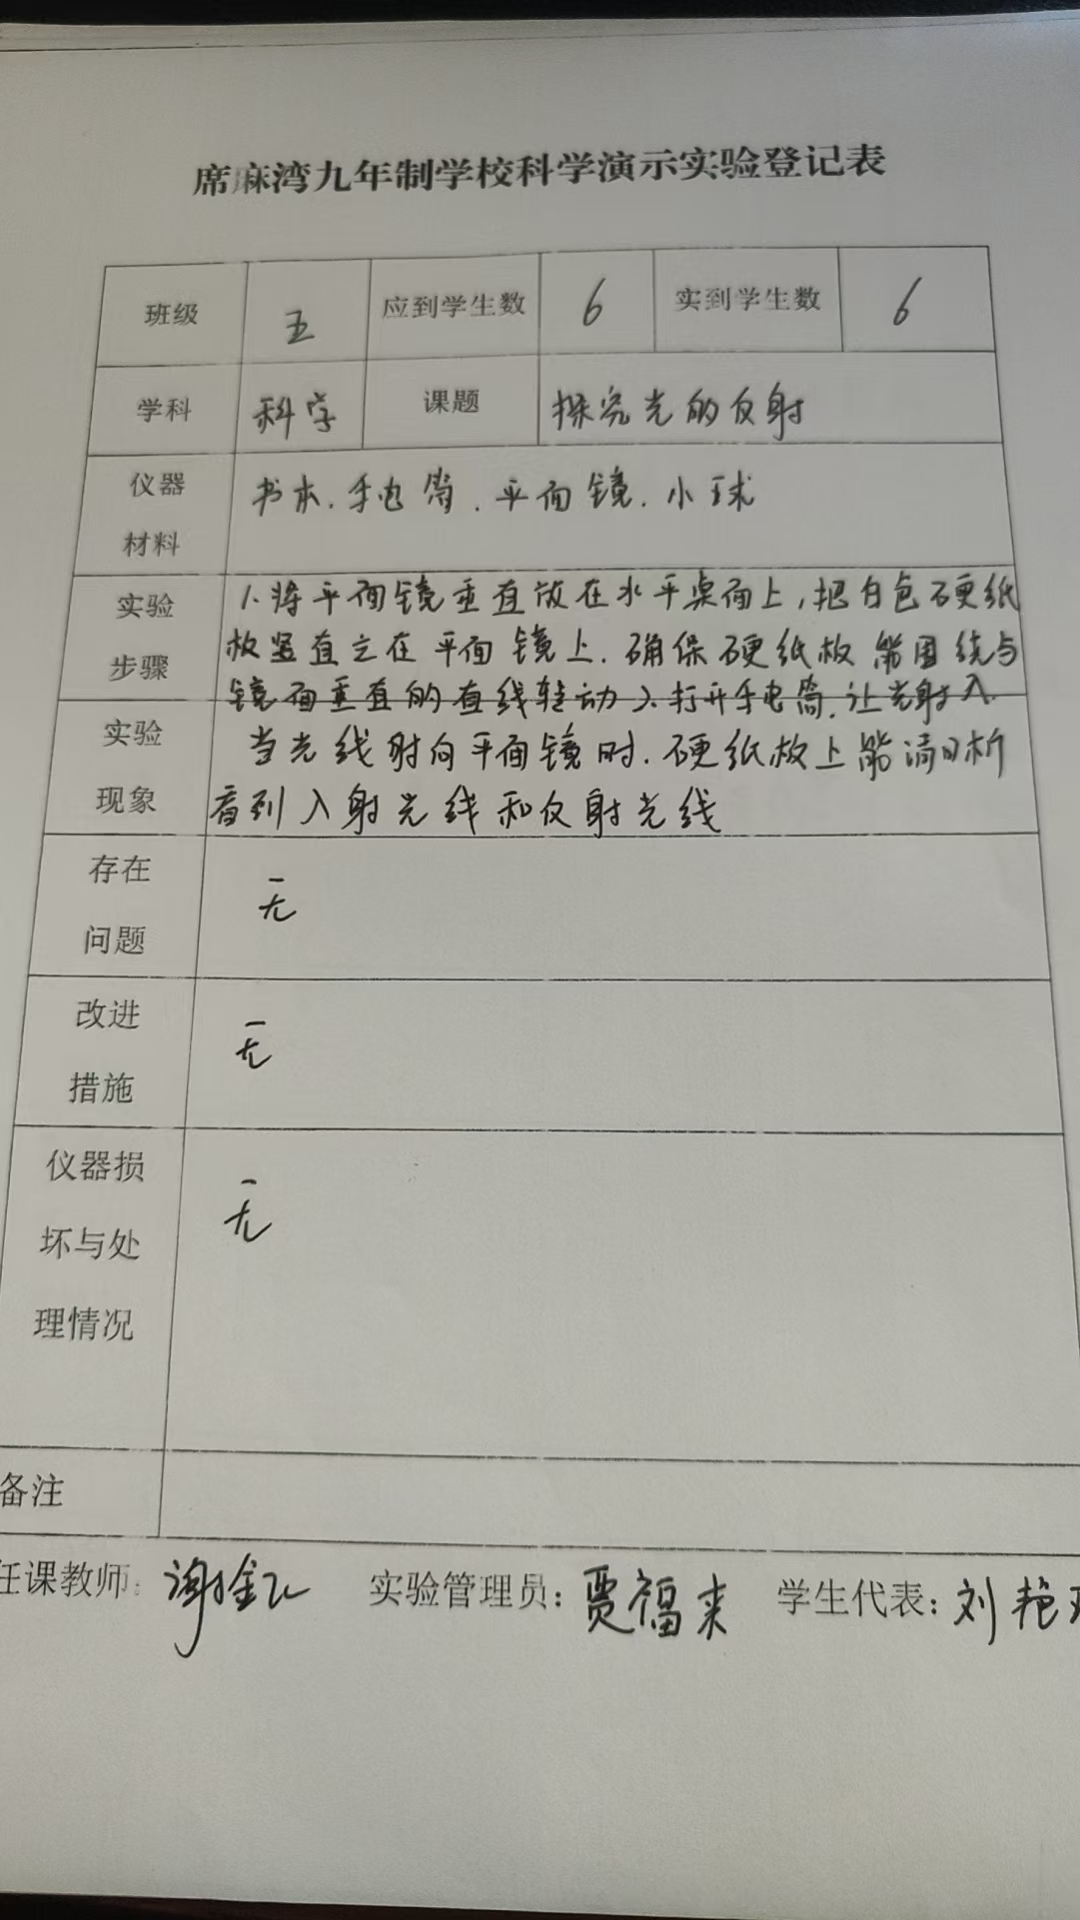 席麻湾九年制学校科学演示实验登记表
班级 五 应到学生数 6 实到学生数 6
学科 科学 课题 探究光的反射
仪器材料 书本.手电筒.平面镜.小球
实验步骤 1.将平面镜垂直放在水平桌面上,把白色硬纸
板竖直立在平面镜上.确保硬纸板能围绕与
镜面垂直的直线转动 2.打开手电筒.让光射入.
实验现象 当光线射向平面镜时.硬纸板上能清晰
看到入射光线和反射光线
存在问题 无
改进措施 无
仪器损坏与处理情况 无
备注
任课教师: 谢金 实验管理员: 贾福来 学生代表: 刘艳